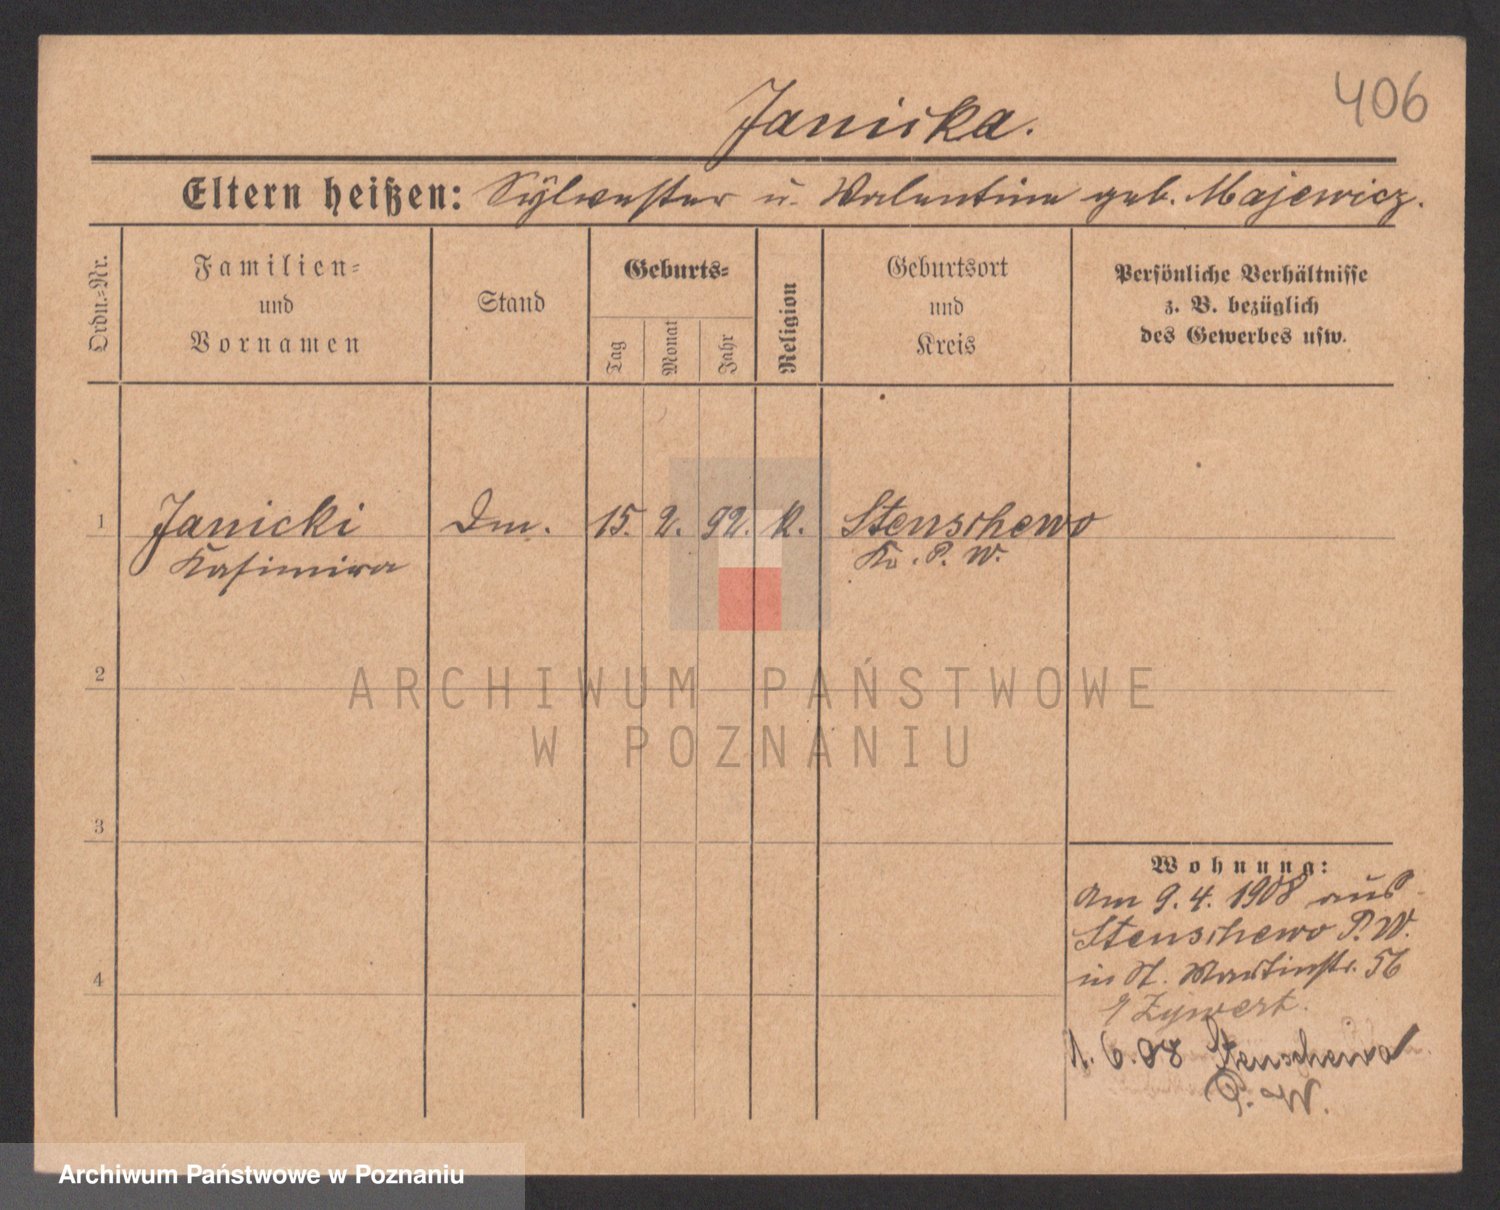 406
Janicka.
Eltern heißen: Sylvester u. Valentine geb. Majewicz.
Ordn.-Nr.
Familien-
und
Vornamen
Stand
Geburts-
Tag
Monat
Jahr
Religion
Geburtsort
und
Kreis
Persönliche Verhältnisse
z. B. bezüglich
des Gewerbes usw.
1 Janicki Dm. 15. 2. 92. k. Stenschewo
Kasimira Kr. P. W.
2
ARCHIWUM PAŃSTWOWE
W POZNANIU
3
Wohnung:
Am 9. 4. 1908 aus
Stenschewo P. W.
in St. Martinstr. 56
4
b/ Zywert.
1. 6. 08 Stenschewo
P. W.
Archiwum Państwowe w Poznaniu